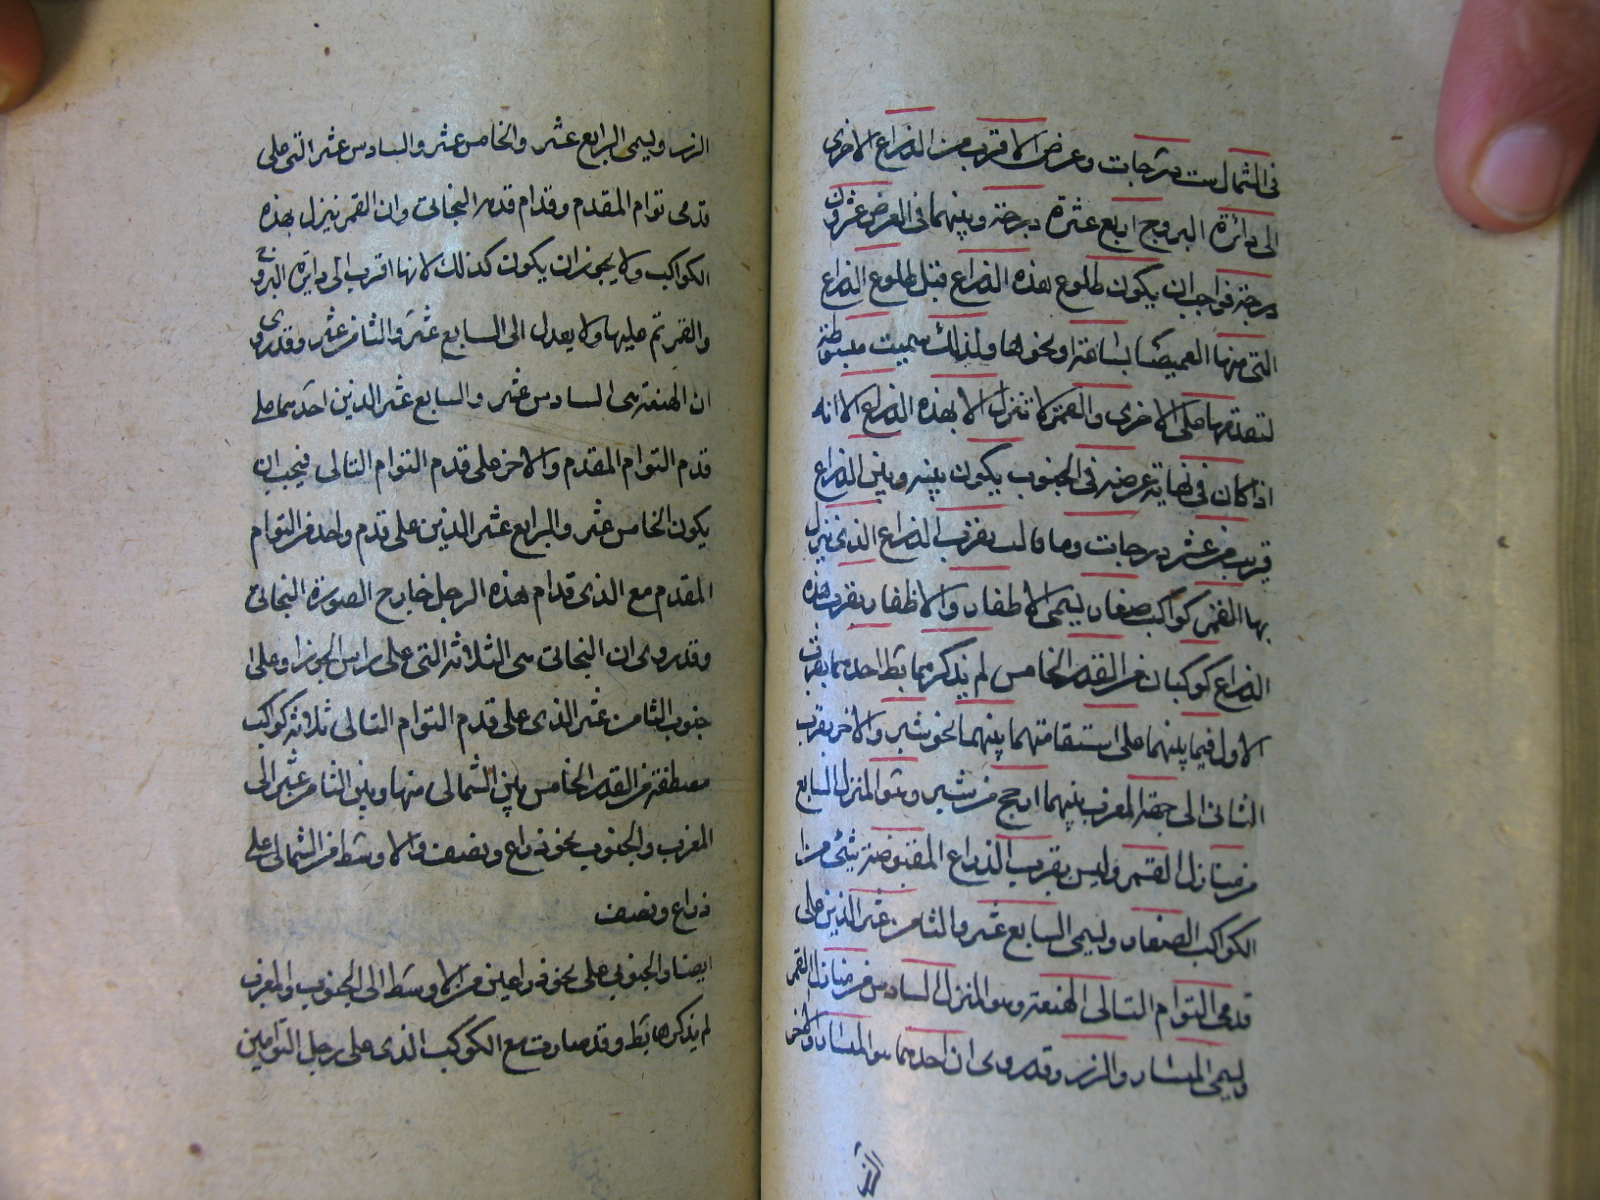 فى الشمال ست درجات وعرض الاقرب من الذراع الاخرى
الى دائرة البروج اربع عشرة درجة وبينهما فى العرض عشرون
درجة فواجب ان يكون طلوع هذه الذراع قبل طلوع الذراع
التى منها الغميصا بساعة او نحوها ولذلك سميت مبسوطة
لتقدمها على الاخرى والقمر لا تنزل الا بهذه الذراع الا انه
اذا كان فى نهاية عرضه فى الجنوب يكون بينه وبين الذراع
قريب من عشر درجات وما قالت بقرب الذراع الذى ينزل
بها القمر كواكب صغار ليسمى الاظفار والاظفار بقرب هذه
الذراع كوكبان من القدر الخامس لم يذكرهما بط احدهما بقرب
الاول فيما بينهما على استقامتهما بينهما نحو شبر والاخر بقرب
الثانى الى جهة المغرب بينهما ارجح من شبر وهو المنزل السابع
من منازل القمر وليس بقرب الذراع المقبوضة شئ من
الكواكب الصغار وليسمى السابع عشر والثامن عشر الذين على
قدمى التوام التالى الهنعة وهو المنزل السادس من منازل القمر
وليسمى الميسان والزر وقد روى ان احدهما هو الميسان والاخر
الزر
الزر وليسمى الرابع عشر والخامس عشر والسادس عشر التى على
قدمى توام المقدم وقدام قدمه النجاتى وان القمر ينزل بهذه
الكواكب ولا يجوز ان يكون كذلك لانها اقرب الى دايرة البروج
والقمر تم عليها ولا يعدل الى السابع عشر والثامن عشر وقد روى
ان الهنعة هى السادس عشر والسابع عشر الذين احدهما على
قدم التوام المقدم والاخر على قدم التوام التالى فيجب ان
يكون الخامس عشر والرابع عشر الذين على قدم واحد من التوام
المقدم مع الذى قدام هذه الرجل خارج الصورة النجاتى
وقد روى ان النجاتى هى الثلاثة التى على راس الجوزا وعلى
جنوب الثامن عشر الذى على قدم التوام التالى ثلاثة كواكب
مصطفة من القدر الخامس بين الشمالى منها وبين الثامن عشر الى
المغرب والجنوب نحو ذراع ونصف والاوسط من الشمالى على
ذراع ونصف
ايضا والجنوبى على نحو ذراعين من الاوسط الى الجنوب والمغرب
لم يذكرها بط وقد صارت مع الكوكب الذى على رجل التوامين